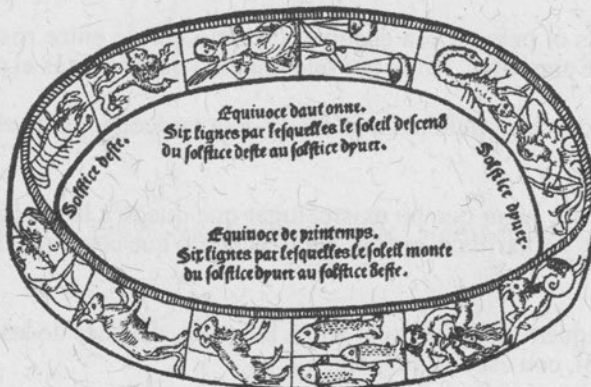 Equinoce dautonne.
Six lignes par lesquelles le soleil descend
du solstice deste au solstice dyuer.
Solstice deste.
Solstice dyuer.
Equinoce de printemps.
Six lignes par lesquelles le soleil monte
du solstice dyuer au solstice deste.